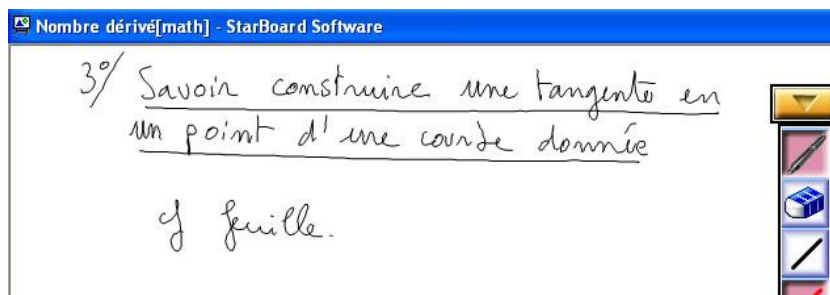 Nombre dérivé[math] - StarBoard Software
3°/ Savoir construire une tangente en
un point d'une courbe donnée
cf feuille.